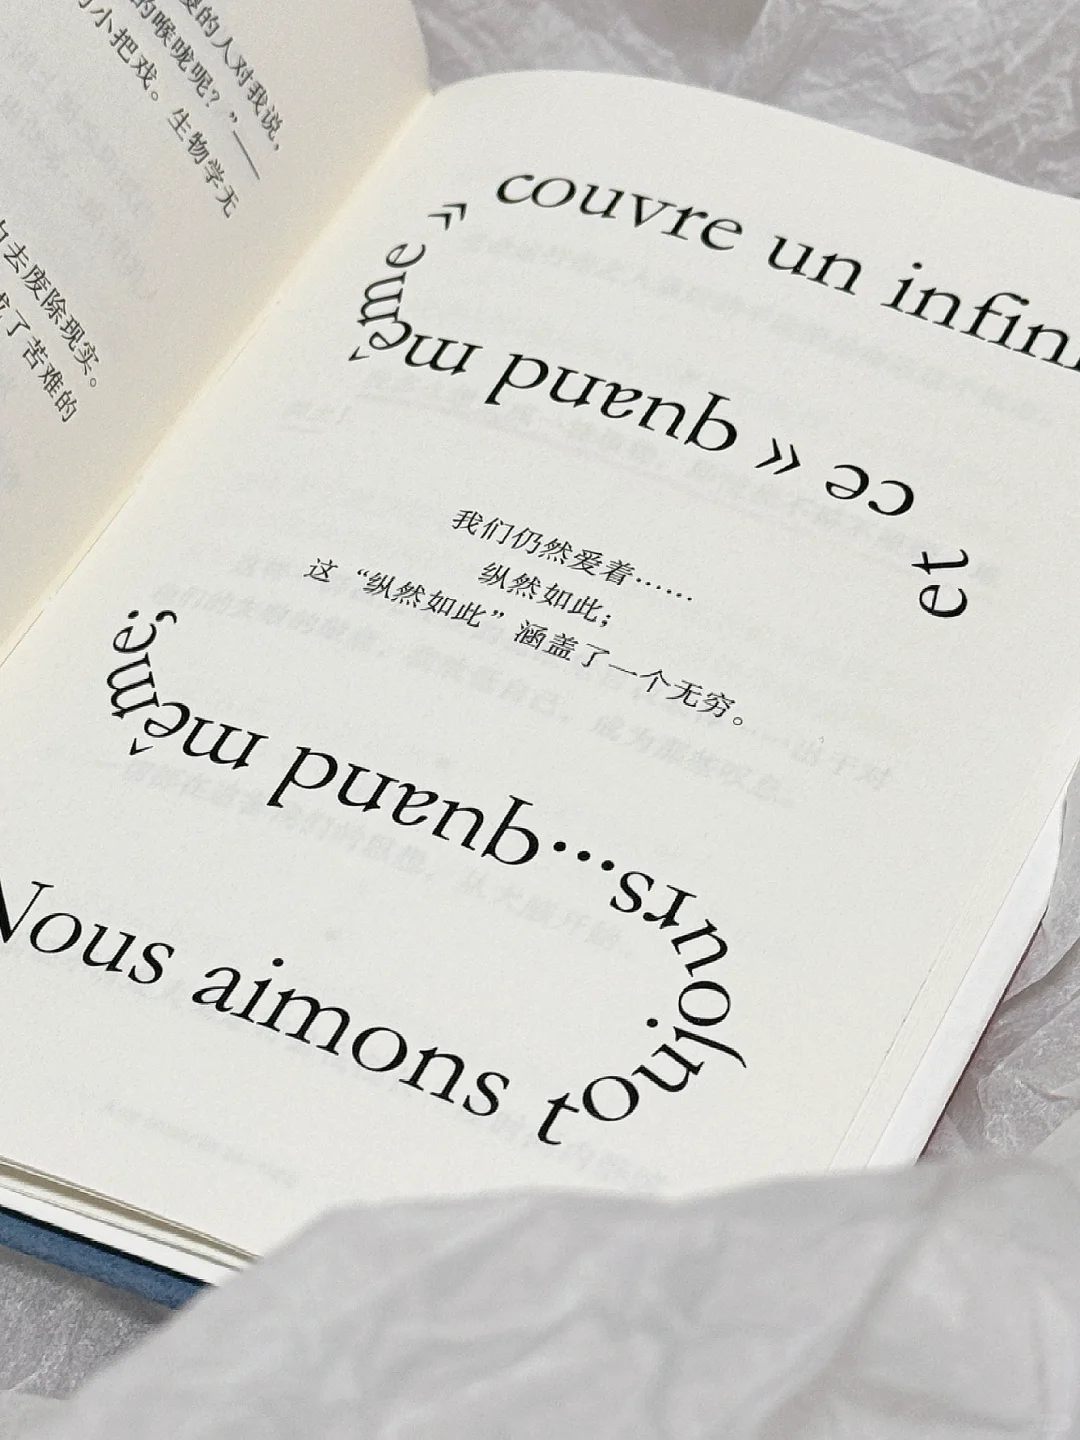 慢的人对我说，
的喉咙呢？”——
小把戏。生物学无
去废除现实。
成了苦难的
Nous aimons toujours...quand même;
et ce « quand même »
couvre un infini
我们仍然爱着……
纵然如此；
这“纵然如此”涵盖了一个无穷。